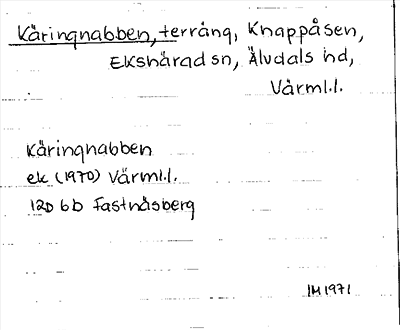 Käringnabben, terräng, Knappåsen,
Ekshärad sn, Älvdals hd,
Värml.l.
Käringnabben
ek (1970) Värml.l.
12D 6b Fastnäsberg
IM 1971